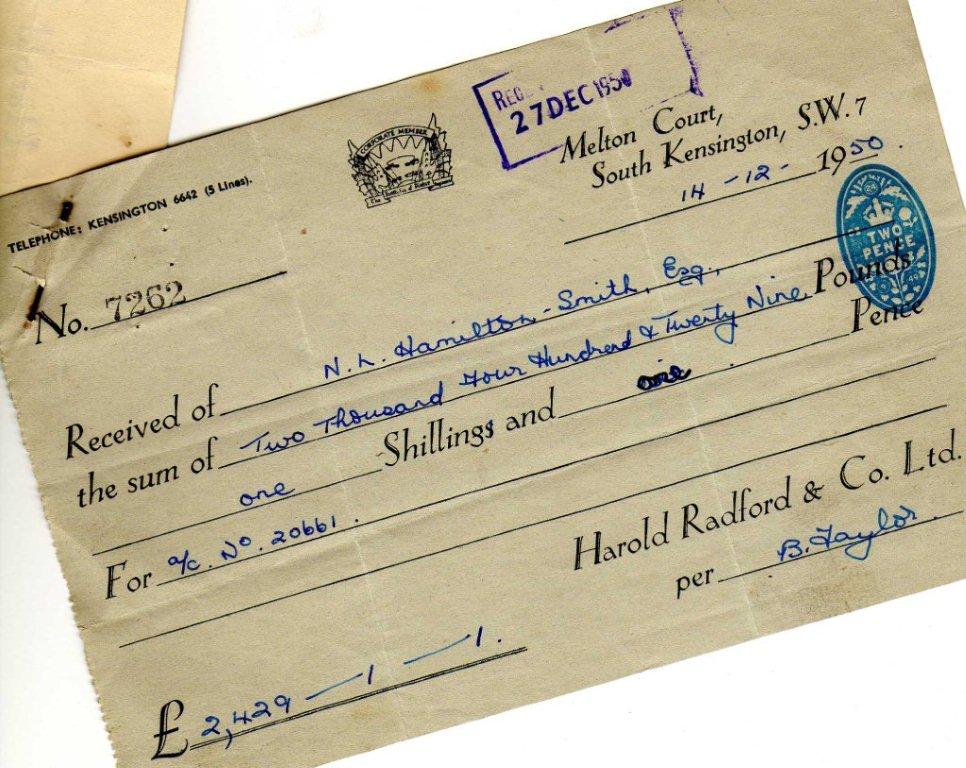 REC
27 DEC 1950
CORPORATE MEMBER
Melton Court,
South Kensington, S.W. 7
TELEPHONE: KENSINGTON 6642 (5 Lines).
14 - 12 - 1950.
TWO
PENCE
No. 7262
Received of N. L. Hamilton-Smith, Esq.,
the sum of Two Thousand Four Hundred & Twenty Nine Pounds
one Shillings and one Pence
For a/c. No. 20661.
Harold Radford & Co. Ltd.
per B. Taylor.
£ 2,429 — 1 — 1.